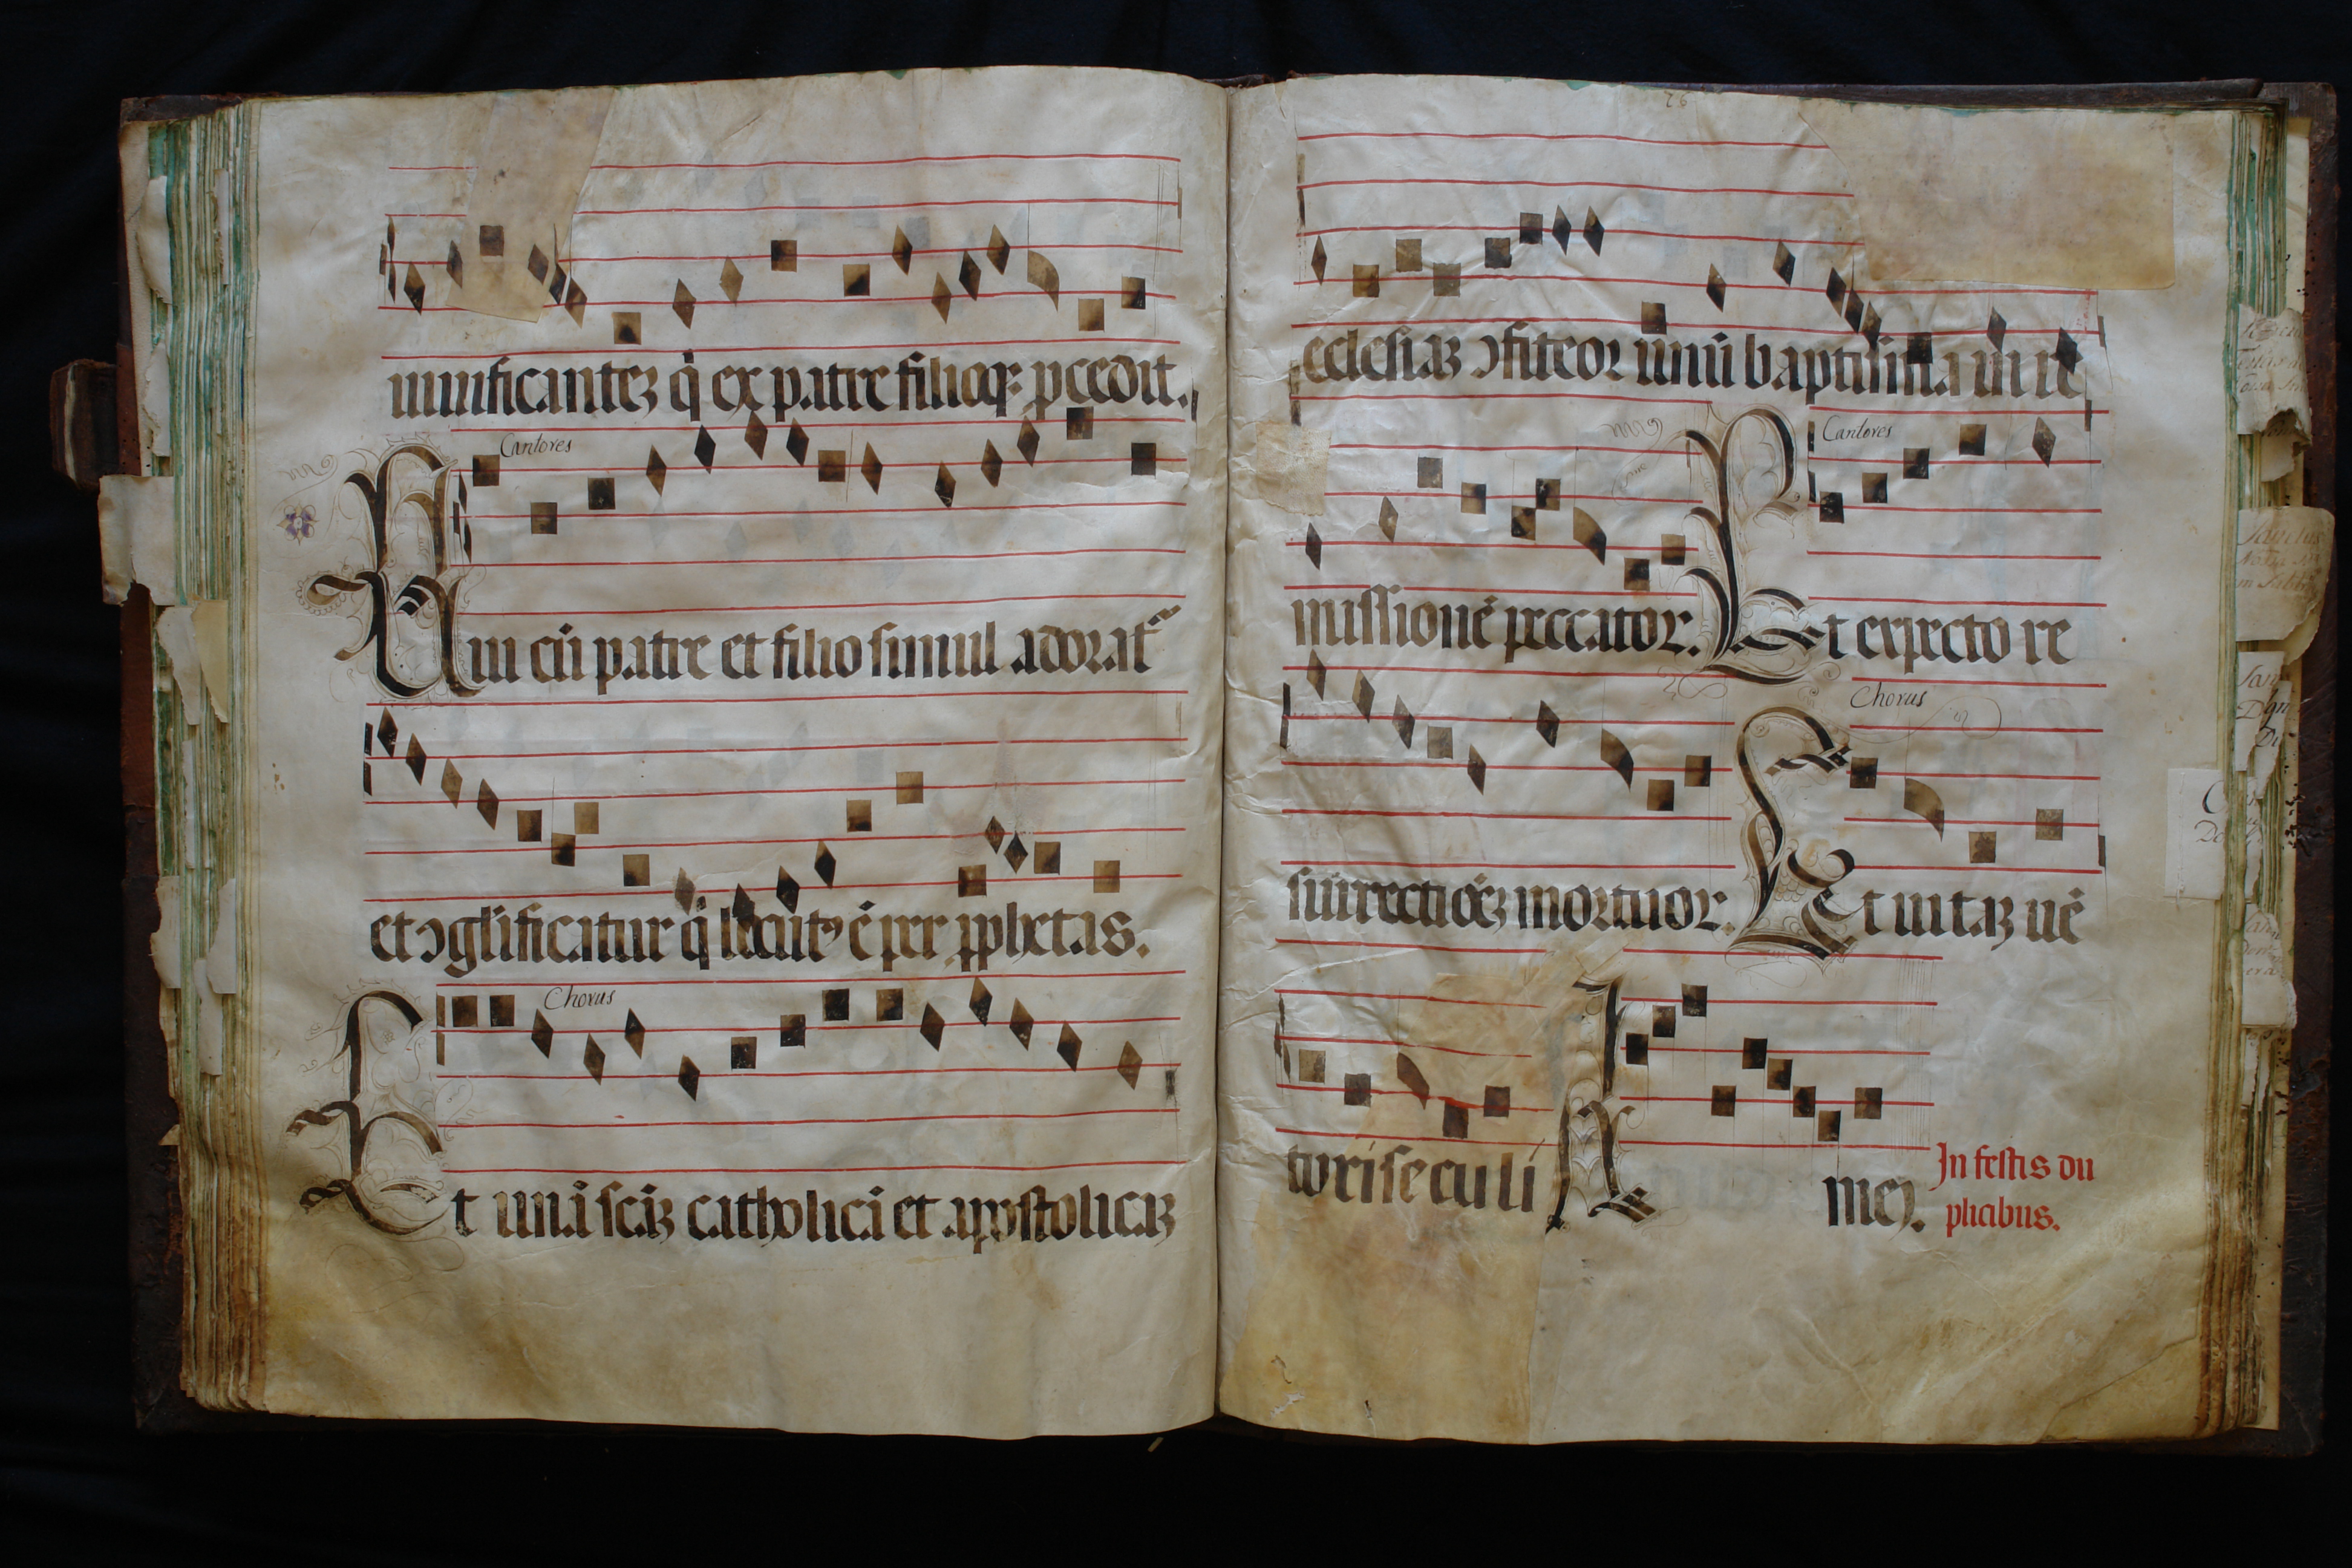 uiuificanteʒ q̇ ex patre filioqʒ pcedit.
Cantores
Qui cū patre et filio simul adorat᷑
et ↄgl̄ificatur q̇ locutꝰ ē per ꝓphetas.
Chorus
Et unā scāʒ catholicā et apostolicaʒ
26
eclesiaʒ ↄfiteor unū baptisma in re
Cantores
missionē peccator. Et expecto re
Chorus
surrectiōeʒ mortuor. Et uitaʒ uē
turi seculi Amen.
In festis du
plicibus.